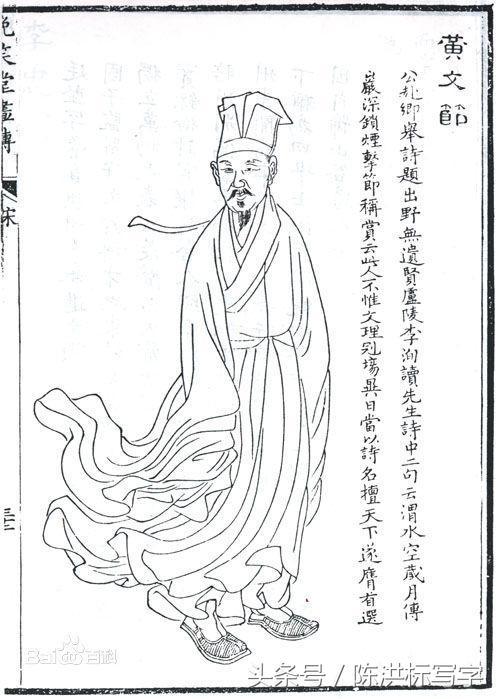 黃文節
公赴鄉舉詩題出野無遺賢廬陵李洵讀先生詩中二句云渭水空藏月傅
巖深鎖煙擊節稱賞云此人不惟文理冠場異日當以詩名擅天下遂膺首選
晚笑堂畫傳
宋
Bai百科
头条号 / 陈洪标写字